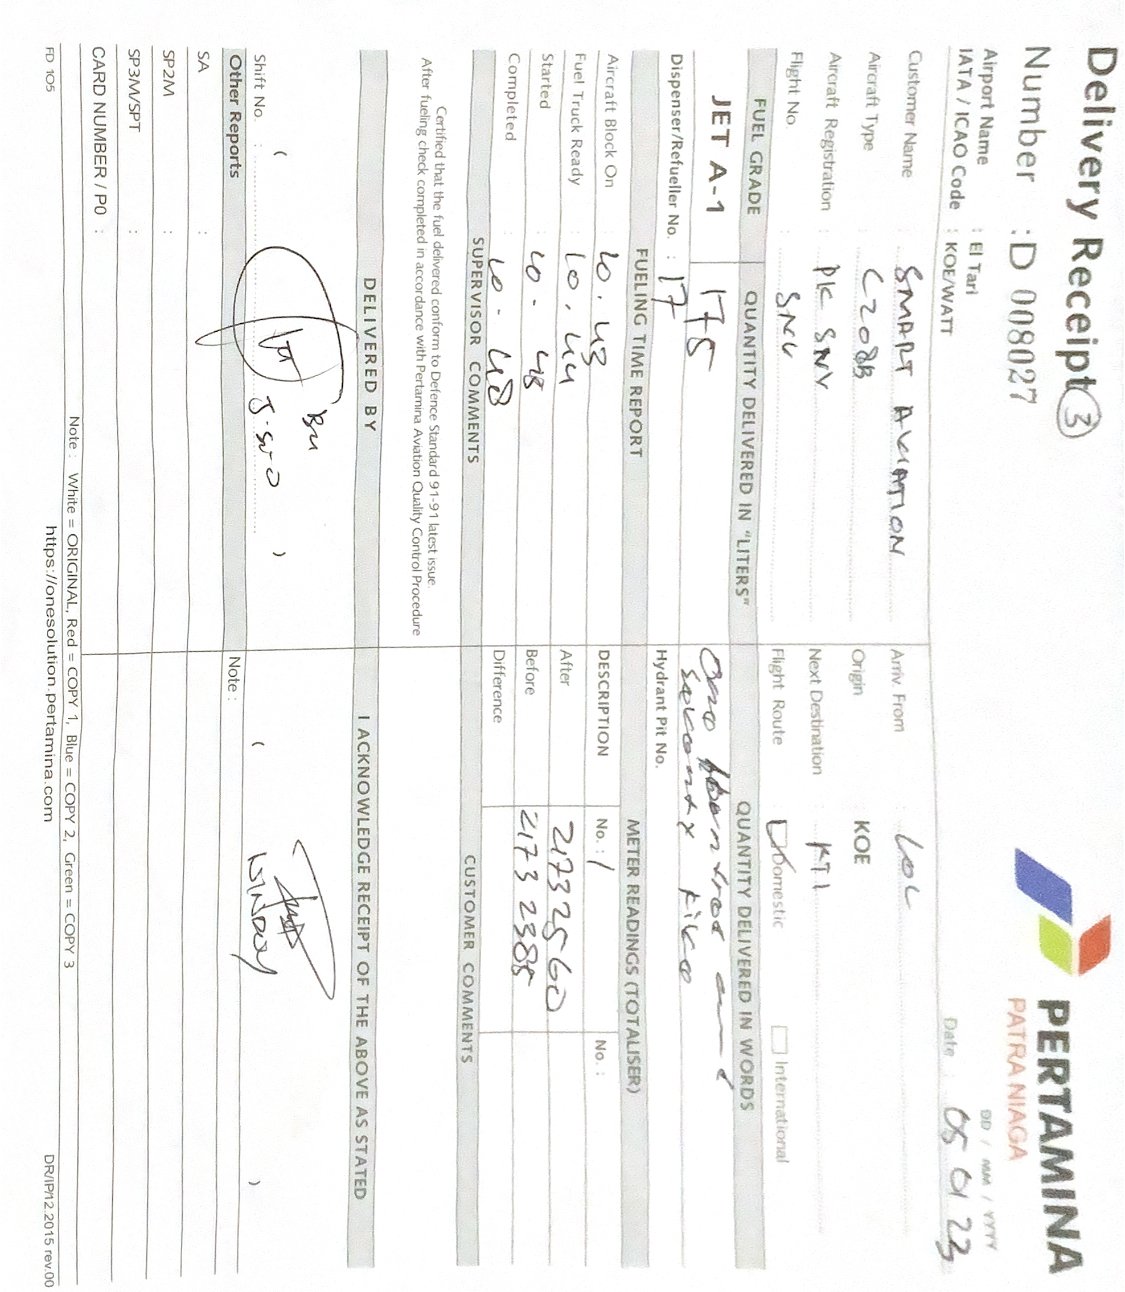 Delivery Receipt 3
Number : D 008027
PERTAMINA
PATRA NIAGA
Airport Name : El Tari
IATA / ICAO Code : KOE/WATT
DD / MM / YYYY
Date : 05 01 23
Customer Name : SMART AVIATION
Aircraft Type : C208B
Aircraft Registration : PK SNV
Flight No. : SNV
Arriv. From : LOL
Origin KOE
Next Destination : KTI
Flight Route Domestic International
FUEL GRADE QUANTITY DELIVERED IN "LITERS" QUANTITY DELIVERED IN WORDS
JET A-1 175 One hundred and
seventy five
Dispenser/Refueller No. : 17 Hydrant Pit No.
FUELING TIME REPORT METER READINGS (TOTALISER)
Aircraft Block On : 10.43 DESCRIPTION No. : 1 No. :
Fuel Truck Ready : 10.44 After 21732560
Started : 10-45 Before 21732385
Completed : 10-48 Difference
SUPERVISOR COMMENTS CUSTOMER COMMENTS
Certified that the fuel delivered conform to Defence Standard 91-91 latest issue.
After fueling check completed in accordance with Pertamina Aviation Quality Control Procedure
DELIVERED BY I ACKNOWLEDGE RECEIPT OF THE ABOVE AS STATED
WINDOY
Shift No. : ( ) ( )
Other Reports Note :
SA :
SP2M :
SP3M/SPT :
CARD NUMBER / P0 :
Note : White = ORIGINAL, Red = COPY 1, Blue = COPY 2, Green = COPY 3
https://onesolution.pertamina.com
FD 105 DR/IP/12.2015 rev.00